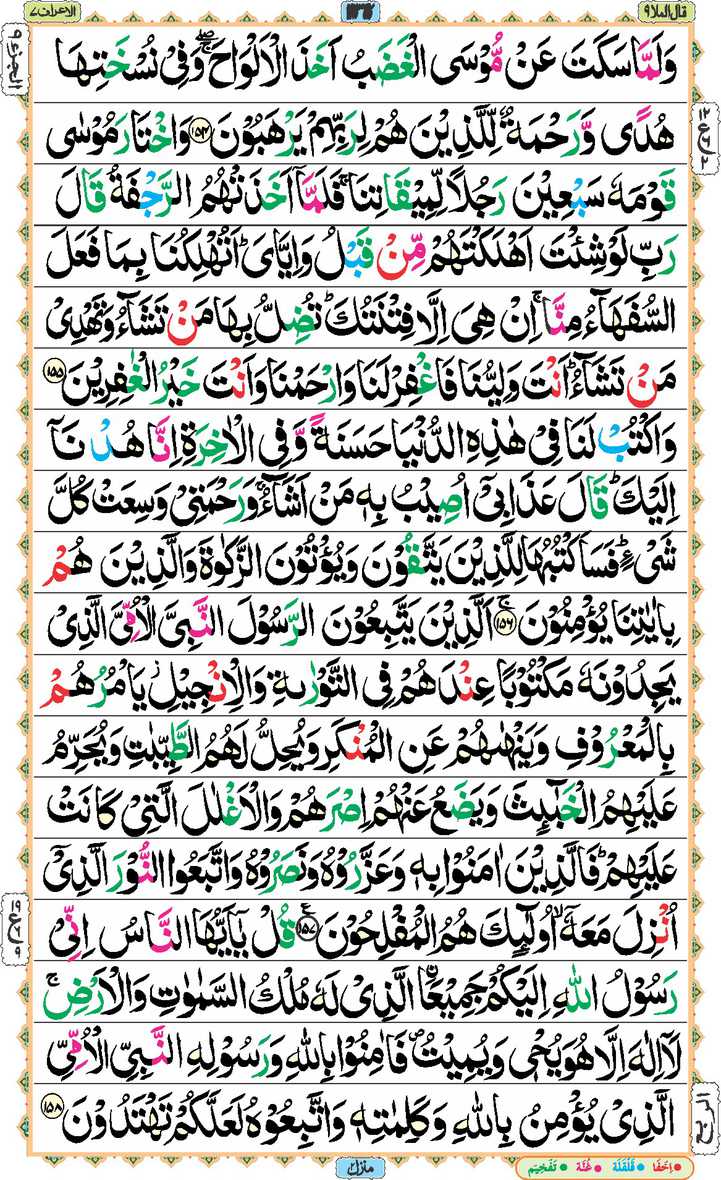 قال الملا ٩
١٣٦
الاعراف ٧
وَلَمَّا سَكَتَ عَنْ مُّوْسَى الْغَضَبُ اَخَذَ الْاَلْوَاحَ ۖۚ وَفِيْ نُسْخَتِهَا
هُدًى وَّرَحْمَةٌ لِّلَّذِيْنَ هُمْ لِرَبِّهِمْ يَرْهَبُوْنَ ﴿۱۵۴﴾ وَاخْتَارَ مُوْسٰى
قَوْمَهٗ سَبْعِيْنَ رَجُلًا لِّمِيْقَاتِنَا ۚ فَلَمَّآ اَخَذَتْهُمُ الرَّجْفَةُ قَالَ
رَبِّ لَوْ شِئْتَ اَهْلَكْتَهُمْ مِّنْ قَبْلُ وَاِيَّايَ ؕ اَتُهْلِكُنَا بِمَا فَعَلَ
السُّفَهَآءُ مِنَّا ۚ اِنْ هِيَ اِلَّا فِتْنَتُكَ ؕ تُضِلُّ بِهَا مَنْ تَشَآءُ وَتَهْدِيْ
مَنْ تَشَآءُ ؕ اَنْتَ وَلِيُّنَا فَاغْفِرْ لَنَا وَارْحَمْنَا وَاَنْتَ خَيْرُ الْغٰفِرِيْنَ ﴿۱۵۵﴾
وَاكْتُبْ لَنَا فِيْ هٰذِهِ الدُّنْيَا حَسَنَةً وَّفِي الْاٰخِرَةِ اِنَّا هُدْنَآ
اِلَيْكَ ؕ قَالَ عَذَابِيْٓ اُصِيْبُ بِهٖ مَنْ اَشَآءُ ۚ وَرَحْمَتِيْ وَسِعَتْ كُلَّ
شَيْءٍ ؕ فَسَاَكْتُبُهَا لِلَّذِيْنَ يَتَّقُوْنَ وَيُؤْتُوْنَ الزَّكٰوةَ وَالَّذِيْنَ هُمْ
بِاٰيٰتِنَا يُؤْمِنُوْنَ ﴿۱۵۶﴾ ۚ اَلَّذِيْنَ يَتَّبِعُوْنَ الرَّسُوْلَ النَّبِيَّ الْاُمِّيَّ الَّذِيْ
يَجِدُوْنَهٗ مَكْتُوْبًا عِنْدَهُمْ فِي التَّوْرٰىةِ وَالْاِنْجِيْلِ ؗ يَاْمُرُهُمْ
بِالْمَعْرُوْفِ وَيَنْهٰىهُمْ عَنِ الْمُنْكَرِ وَيُحِلُّ لَهُمُ الطَّيِّبٰتِ وَيُحَرِّمُ
عَلَيْهِمُ الْخَبٰٓئِثَ وَيَضَعُ عَنْهُمْ اِصْرَهُمْ وَالْاَغْلٰلَ الَّتِيْ كَانَتْ
عَلَيْهِمْ ؕ فَالَّذِيْنَ اٰمَنُوْا بِهٖ وَعَزَّرُوْهُ وَنَصَرُوْهُ وَاتَّبَعُوا النُّوْرَ الَّذِيْٓ
اُنْزِلَ مَعَهٗٓ ۙ اُولٰٓئِكَ هُمُ الْمُفْلِحُوْنَ ﴿۱۵۷﴾ قُلْ يٰٓاَيُّهَا النَّاسُ اِنِّيْ
رَسُوْلُ اللّٰهِ اِلَيْكُمْ جَمِيْعَا ۨ الَّذِيْ لَهٗ مُلْكُ السَّمٰوٰتِ وَالْاَرْضِ ۚ
لَآ اِلٰهَ اِلَّا هُوَ يُحْيٖ وَيُمِيْتُ ۪ فَاٰمِنُوْا بِاللّٰهِ وَرَسُوْلِهِ النَّبِيِّ الْاُمِّيِّ
الَّذِيْ يُؤْمِنُ بِاللّٰهِ وَكَلِمٰتِهٖ وَاتَّبِعُوْهُ لَعَلَّكُمْ تَهْتَدُوْنَ ﴿۱۵۸﴾
منزل ٢
• اِخفَا • قَلْقَلَه • غُنَّه • تَفْخِيْم